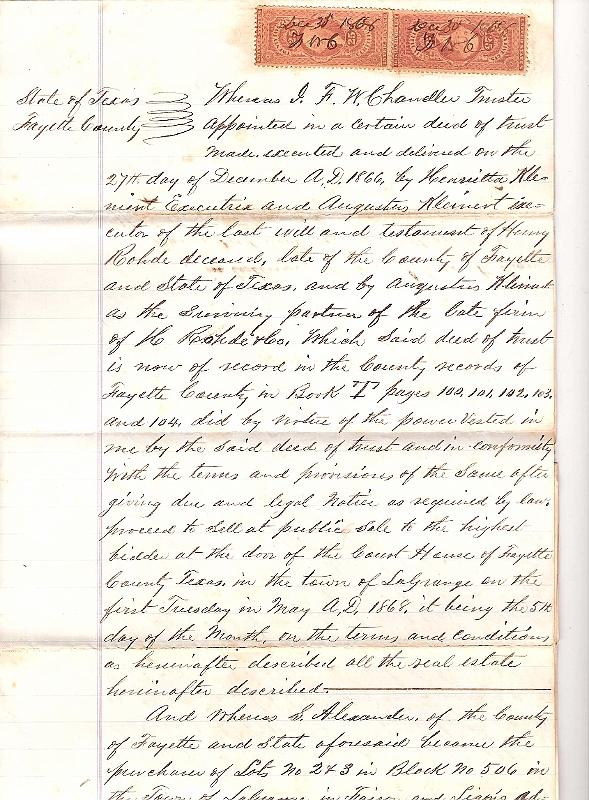 Dec 30th 1866
Dec 30th 1866
State of Texas
Fayette County
Whereas I. F. W. Chandler Trustee
appointed in a certain deed of trust
made, executed and delivered on the
27th day of December A.D. 1866, by Henrietta Kle-
inert Executrix and Augustus Kleinert exe-
cutor of the last will and testament of Henry
Rohde deceased, late of the County of Fayette
and State of Texas, and by Augustus Kleinert
as the Surviving partner of the late firm
of H Rohde & Co, Which said deed of trust
is now of record in the County records of
Fayette County in Book "T" pages 100, 101, 102, 103,
and 104, did by virtue of the power Vested in
me by the said deed of trust and in conformity
With the terms and provisions of the Same after
giving due and legal Notice as required by law,
proceed to Sell at public Sale to the highest
bidder at the door of the Court House of Fayette
County Texas, in the town of LaGrange on the
first Tuesday in May A.D. 1868, it being the 5th
day of the Month, on the terms and Conditions
as hereinafter described all the real estate
hereinafter described.
And Whereas S. Alexander, of the County
of Fayette and State aforesaid became the
purchaser of Lots No 2 & 3 in Block No 506 in
the Town of LaGrange in